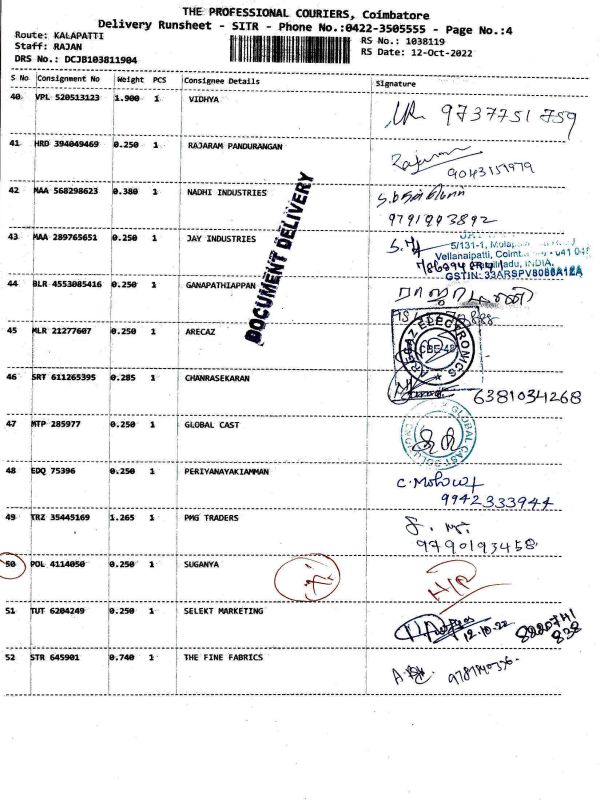 THE PROFESSIONAL COURIERS, Coimbatore
Delivery Runsheet - SITR - Phone No.:0422-3505555 - Page No.:4
Route: KALAPATTI
Staff: RAJAN
DRS No.: DCJB103811904
RS No.: 1038119
RS Date: 12-Oct-2022
S No Consignment No Weight PCS Consignee Details Signature
40 VPL 520513123 1.900 1 VIDHYA 9737751759
41 HRD 394049469 0.250 1 RAJARAM PANDURANGAN
9043151979
42 MAA 568298623 0.380 1 NADHI INDUSTRIES
9791993892
DOCUMENT DELIVERY
43 MAA 289765651 0.250 1 JAY INDUSTRIES
5/131-1,
Vellanaipatti,
INDIA.
GSTIN: 33ARSPV8080A1ZA
44 BLR 4553085416 0.250 1 GANAPATHIAPPAN
45 MLR 21277607 0.250 1 AREZAZ
ELECTRONICS
CBE-48
46 SRT 611265395 0.285 1 CHANRASEKARAN 6381034268
47 MTP 285977 0.250 1 GLOBAL CAST
GLOBAL CAST
48 EDQ 75396 0.250 1 PERIYANAYAKIAMMAN
9942333944
49 TRZ 35445169 1.265 1 PMG TRADERS
9790193458
50 POL 4114050 0.250 1 SUGANYA
51 TUT 6204249 0.250 1 SELEKT MARKETING
12.10.22 8220741
838
52 STR 645901 0.740 1 THE FINE FABRICS